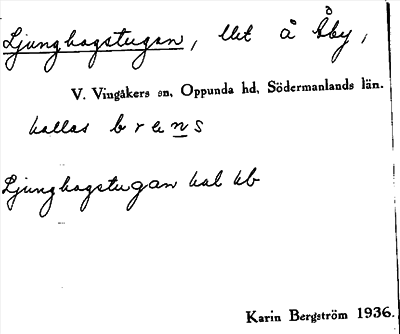 Ljunghagstugan, llet å Åby,
V. Vingåkers sn, Oppunda hd, Södermanlands län.
kallas brens
Ljunghagstugan kal kb
Karin Bergström 1936.